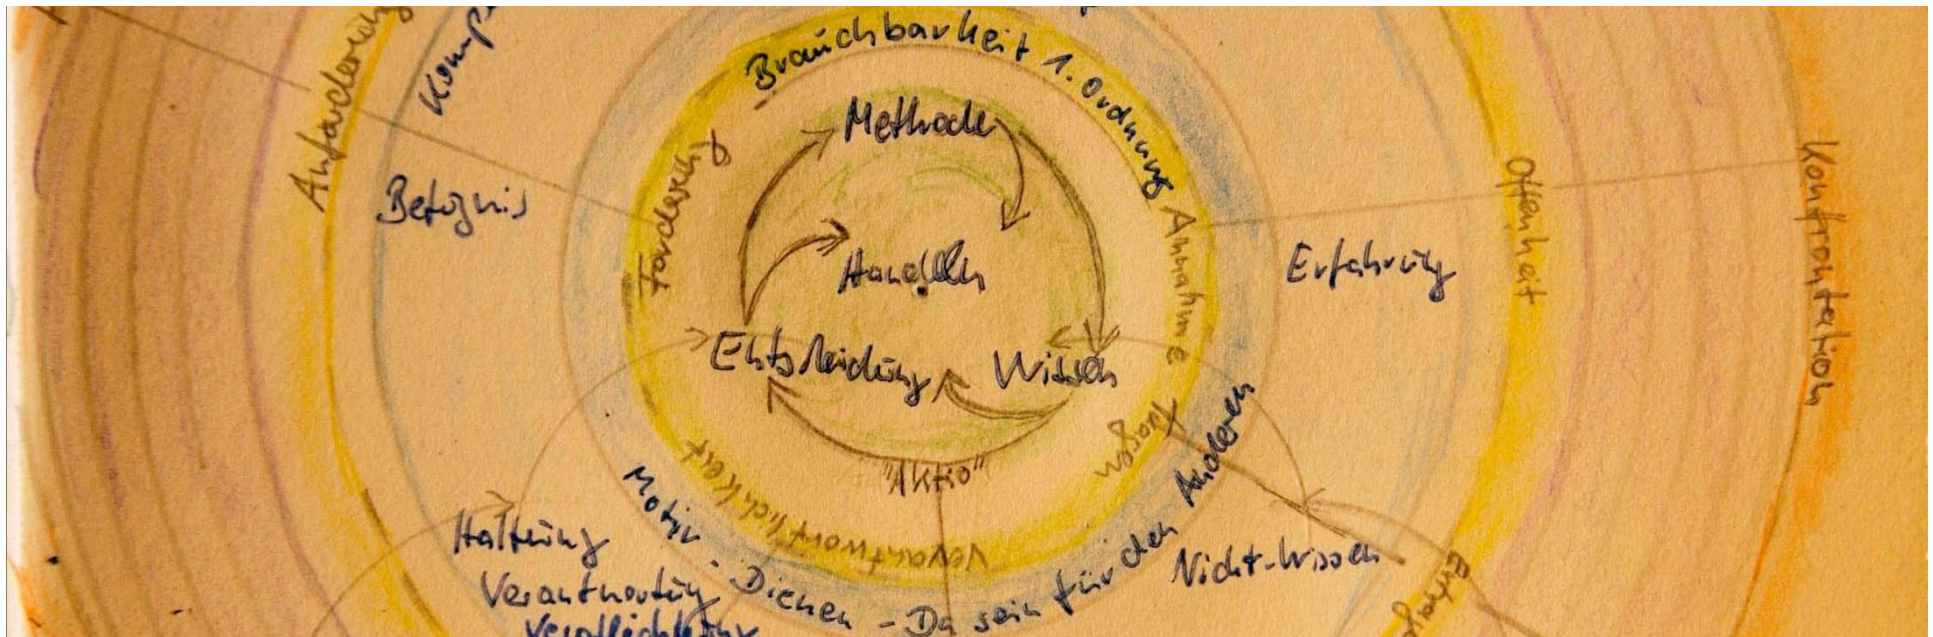 Anforderung
Komp
Brauchbarkeit 1. Ordnung
Methode
Fordern
Befugnis
Annahme
Offenheit
Konfrontation
Handeln
Erfahrung
Entscheidung
Wissen
Fragen
"Aktio"
Verantwortlichkeit
Motiv - Dienen - Da sein für den Anderen
Haltung
Verantwortung
Verpflichtung
Nicht-Wissen